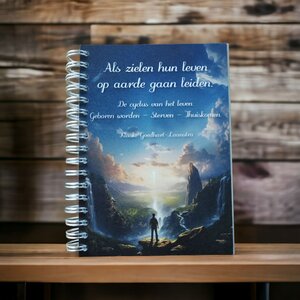 Als zielen hun leven
op aarde gaan leiden.
De cyclus van het leven
Geboren worden – Sterven – Thuiskomen.
Goedhart-Loonstra